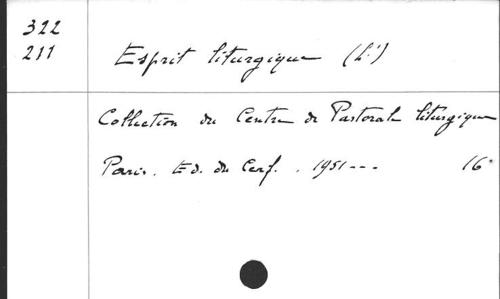 322
211
Esprit liturgique (L')
Collection du Centre de Pastorale liturgique
Paris. Ed. du Cerf. . 1951 --- 16°